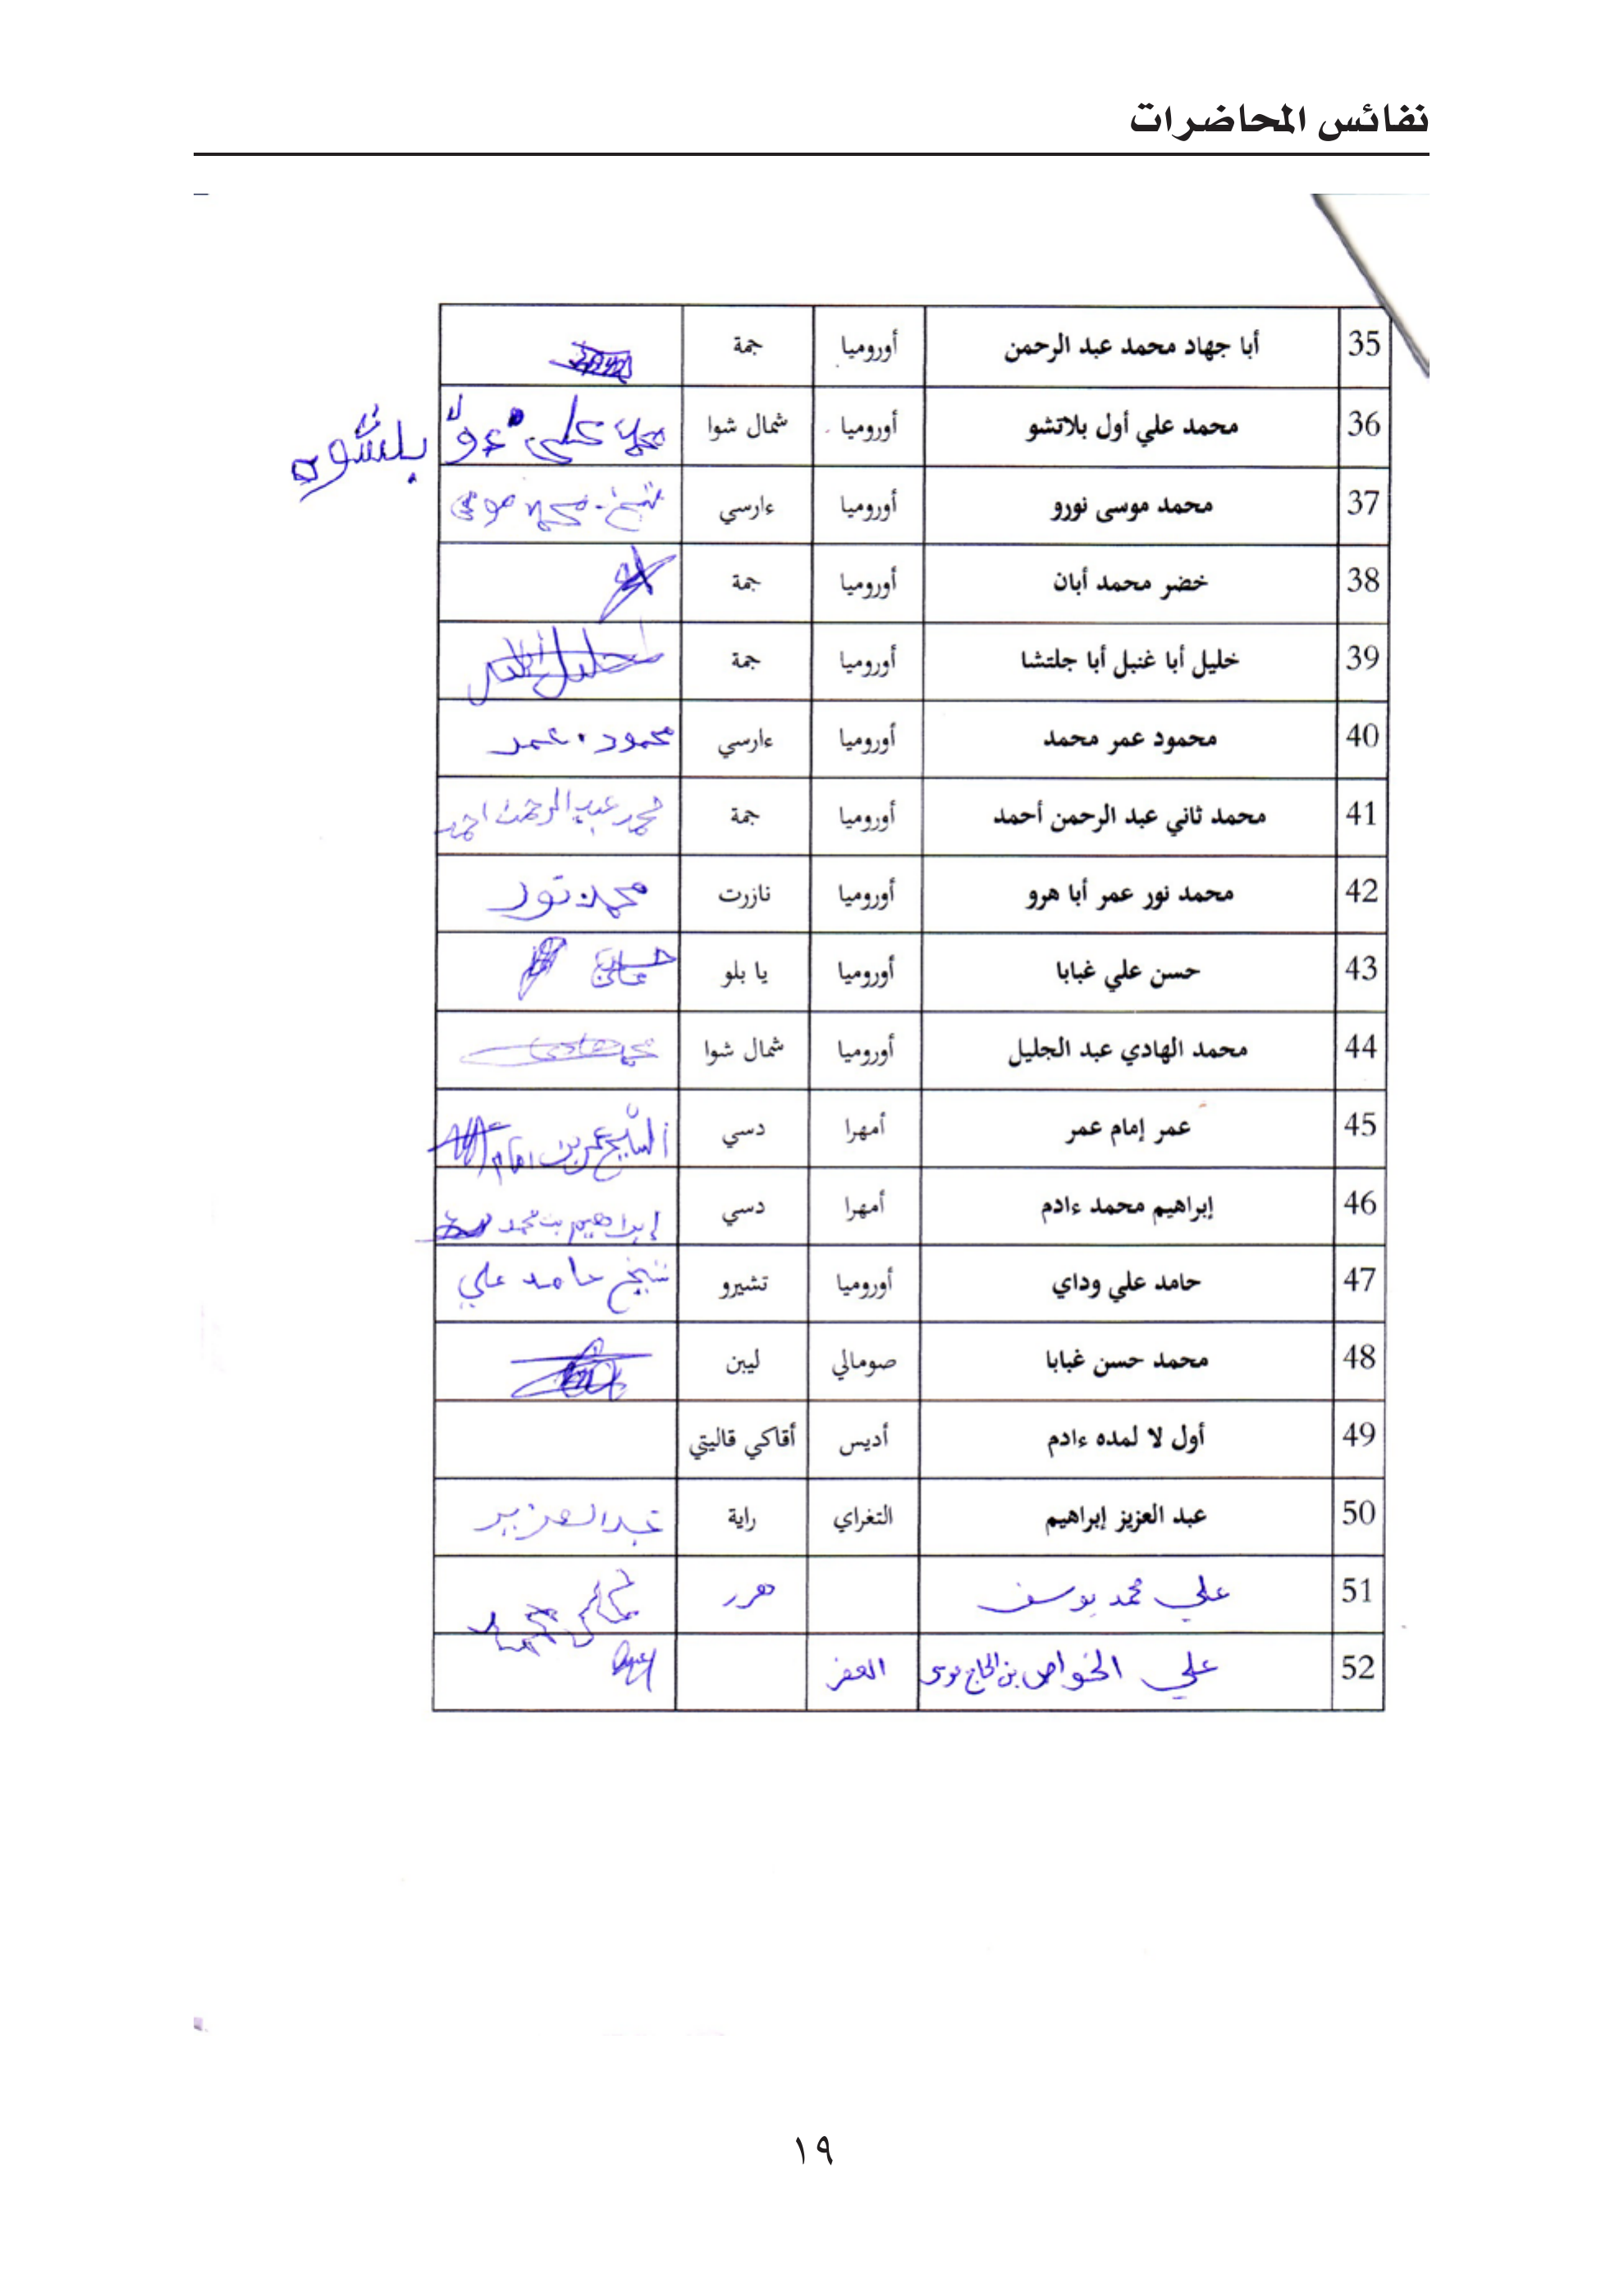 نفائس المحاضرات
35 أبا جهاد محمد عبد الرحمن أوروميا جمة
36 محمد علي أول بلاتشو أوروميا شمال شوا محمد علي ءوّل بلتشوه
37 محمد موسى نورو أوروميا ءارسي شيخ محمد موسى
38 خضر محمد أبان أوروميا جمة
39 خليل أبا غنبل أبا جلتشا أوروميا جمة خليل
40 محمود عمر محمد أوروميا ءارسي محمود عمر
41 محمد ثاني عبد الرحمن أحمد أوروميا جمة محمد عبد الرحمن احمد
42 محمد نور عمر أبا هرو أوروميا نازرت محمد نور
43 حسن علي غبابا أوروميا يا بلو حسن علي
44 محمد الهادي عبد الجليل أوروميا شمال شوا محمد هادي
45 عمر إمام عمر أمهرا دسي الشيخ عمر بن امام
46 إبراهيم محمد ءادم أمهرا دسي إبراهيم بن محمد
47 حامد علي وداي أوروميا تشيرو شيخ حامد علي
48 محمد حسن غبابا صومالي ليبن
49 أول لا لمده ءادم أديس أقاكي قاليتي
50 عبد العزيز إبراهيم التغراي راية عبد العزيز
51 علي محمد يوسف هرر علي محمد
52 علي الخواص بن الحاج موسى العفر
١٩